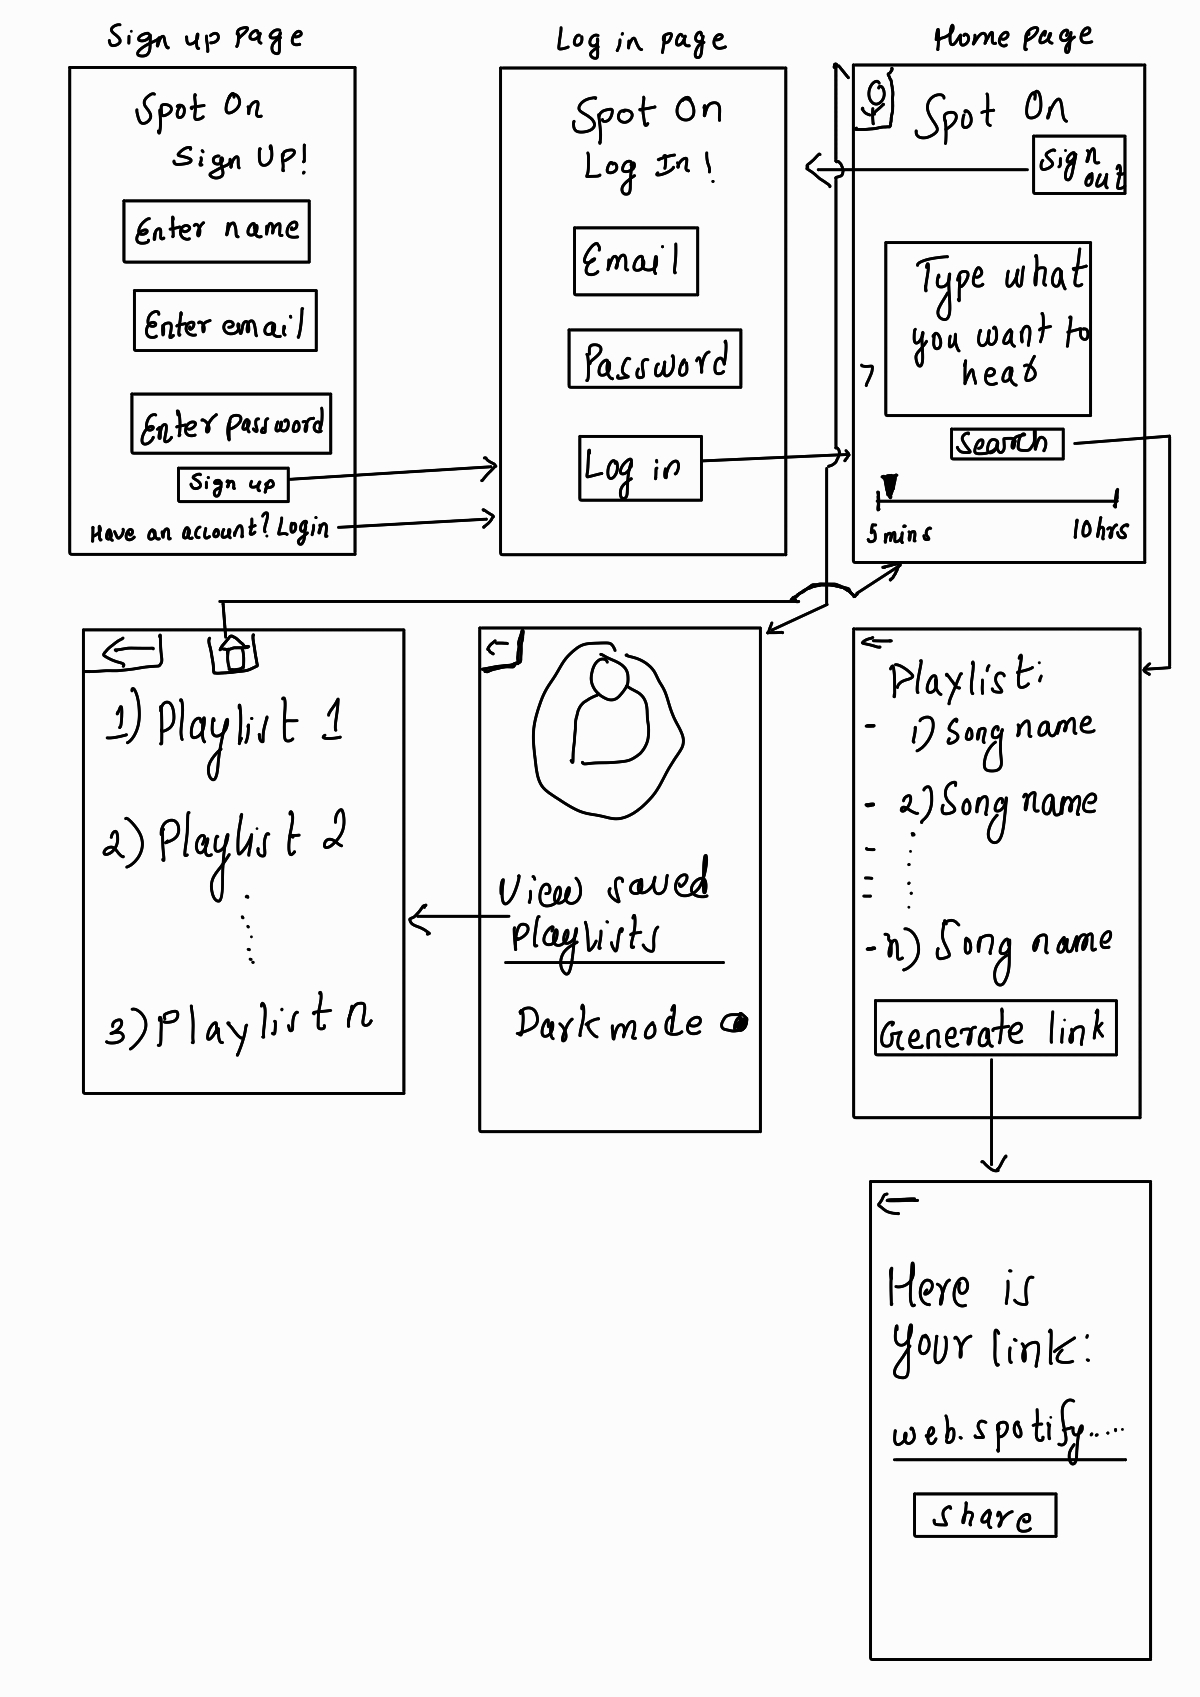 Sign up page
Spot On
Sign UP!
Enter name
Enter email
Enter password
Sign up
Have an account? Login
Log in page
Spot On
Log In!
Email
Password
Log in
Home page
Spot On
Sign
out
Type what
you want to
hear
Search
5 mins
10hrs
1) Playlist 1
2) Playlist 2
3) Playlist n
View saved
playlists
Dark mode
Playlist:
- 1) Song name
- 2) Song name
- n) Song name
Generate link
Here is
your link:
web.spotify.....
share